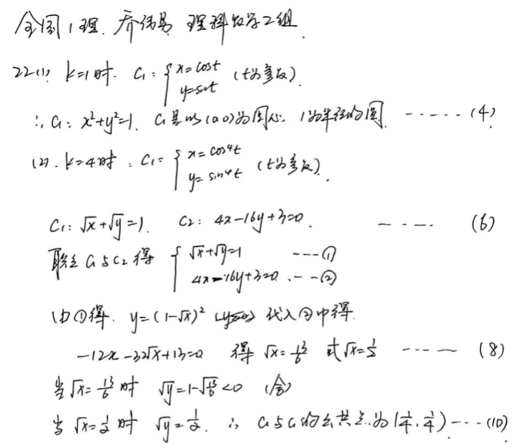 全国1理. 乔伟易 理科数学2组.
22.(1) k=1时. C₁: { x=cost y=sint (t为参数).
∴ C₁: x²+y²=1. C₁是以(0,0)为圆心. 1为半径的圆. ----- (4)
(2). k=4时. C₁= { x=cos⁴t y=sin⁴t (t为参数).
C₁: √x+√y=1. C₂: 4x-16y+3=0. ---- (6)
联立C₁与C₂得 { √x+√y=1 ---① 4x-16y+3=0 ---②
由①得. y=(1-√x)² 代入②中得.
-12x-32√x+13=0 得 √x=13/6 或√x=1/2 ---- (8)
当√x=13/6时 √y=1-√13/6<0 (舍)
当√x=1/2时 √y=1/2. ∴ C₁与C₁的公共点为(1/4,1/4)---(10)